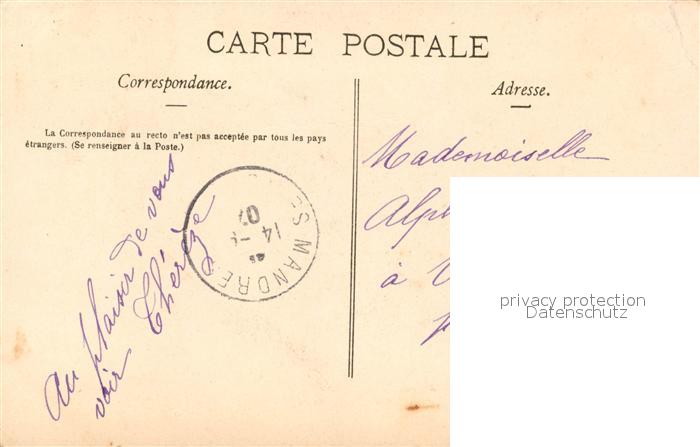 CARTE POSTALE
Correspondance.
La Correspondance au recto n'est pas acceptée par tous les pays
étrangers. (Se renseigner à la Poste.)
Au plaisir de vous
voir Thérèze
MANDRES
14
07
Adresse.
Mademoiselle
Alph
à V
privacy protection
Datenschutz